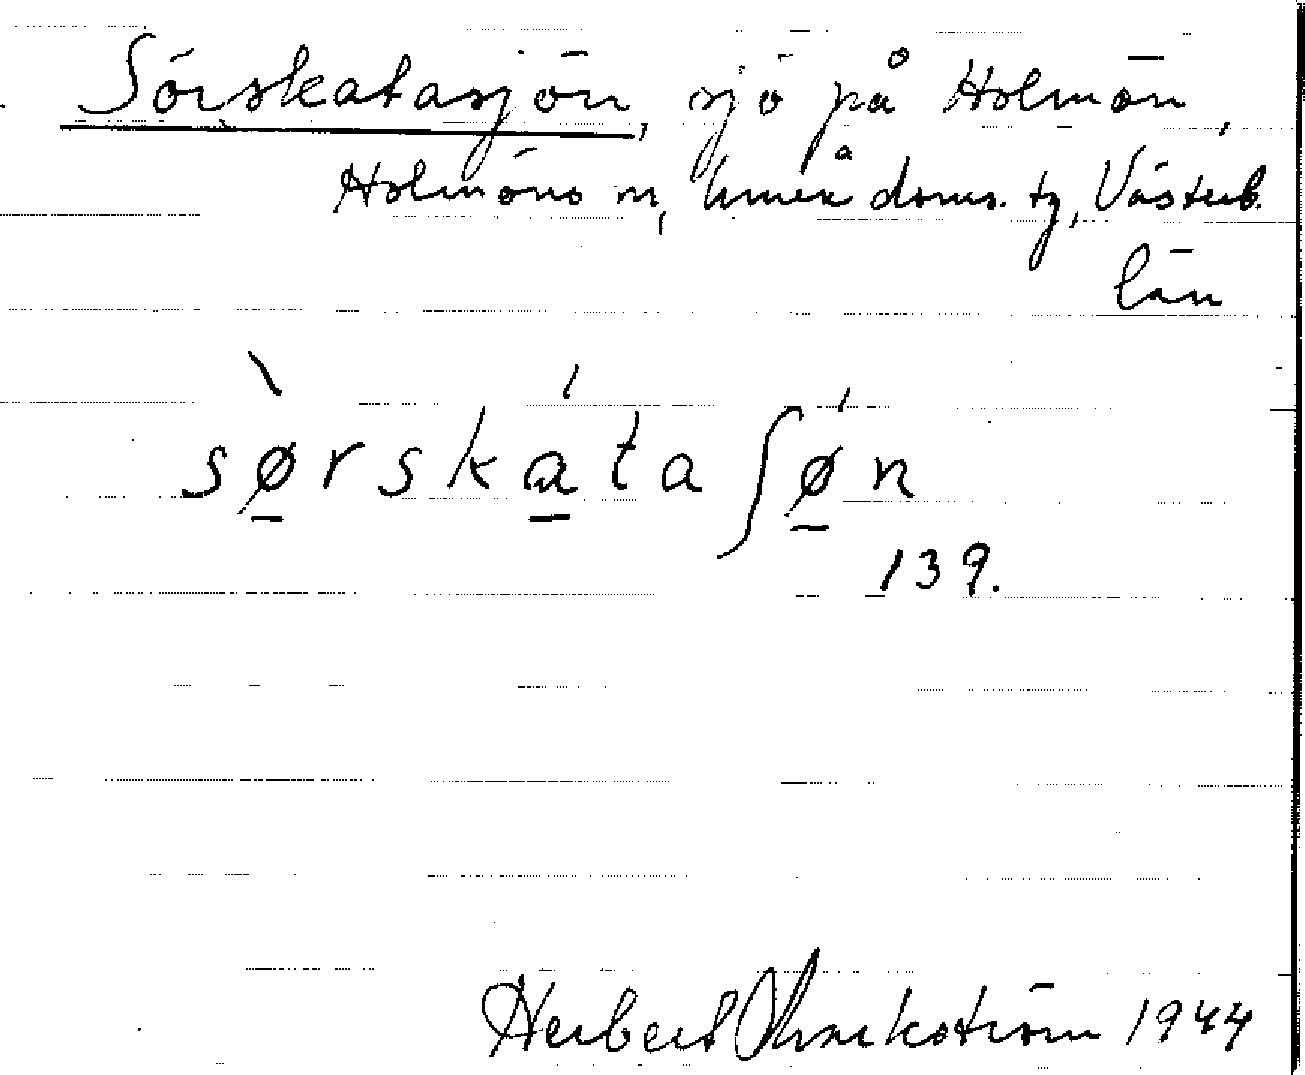 Sörskatasjön, sjö på Holmön,
Holmöns sn, Umeå doms. tg, Västerb.
län
sø̱̀rská̱taʃǿ̱n
139.
Herbert 1944